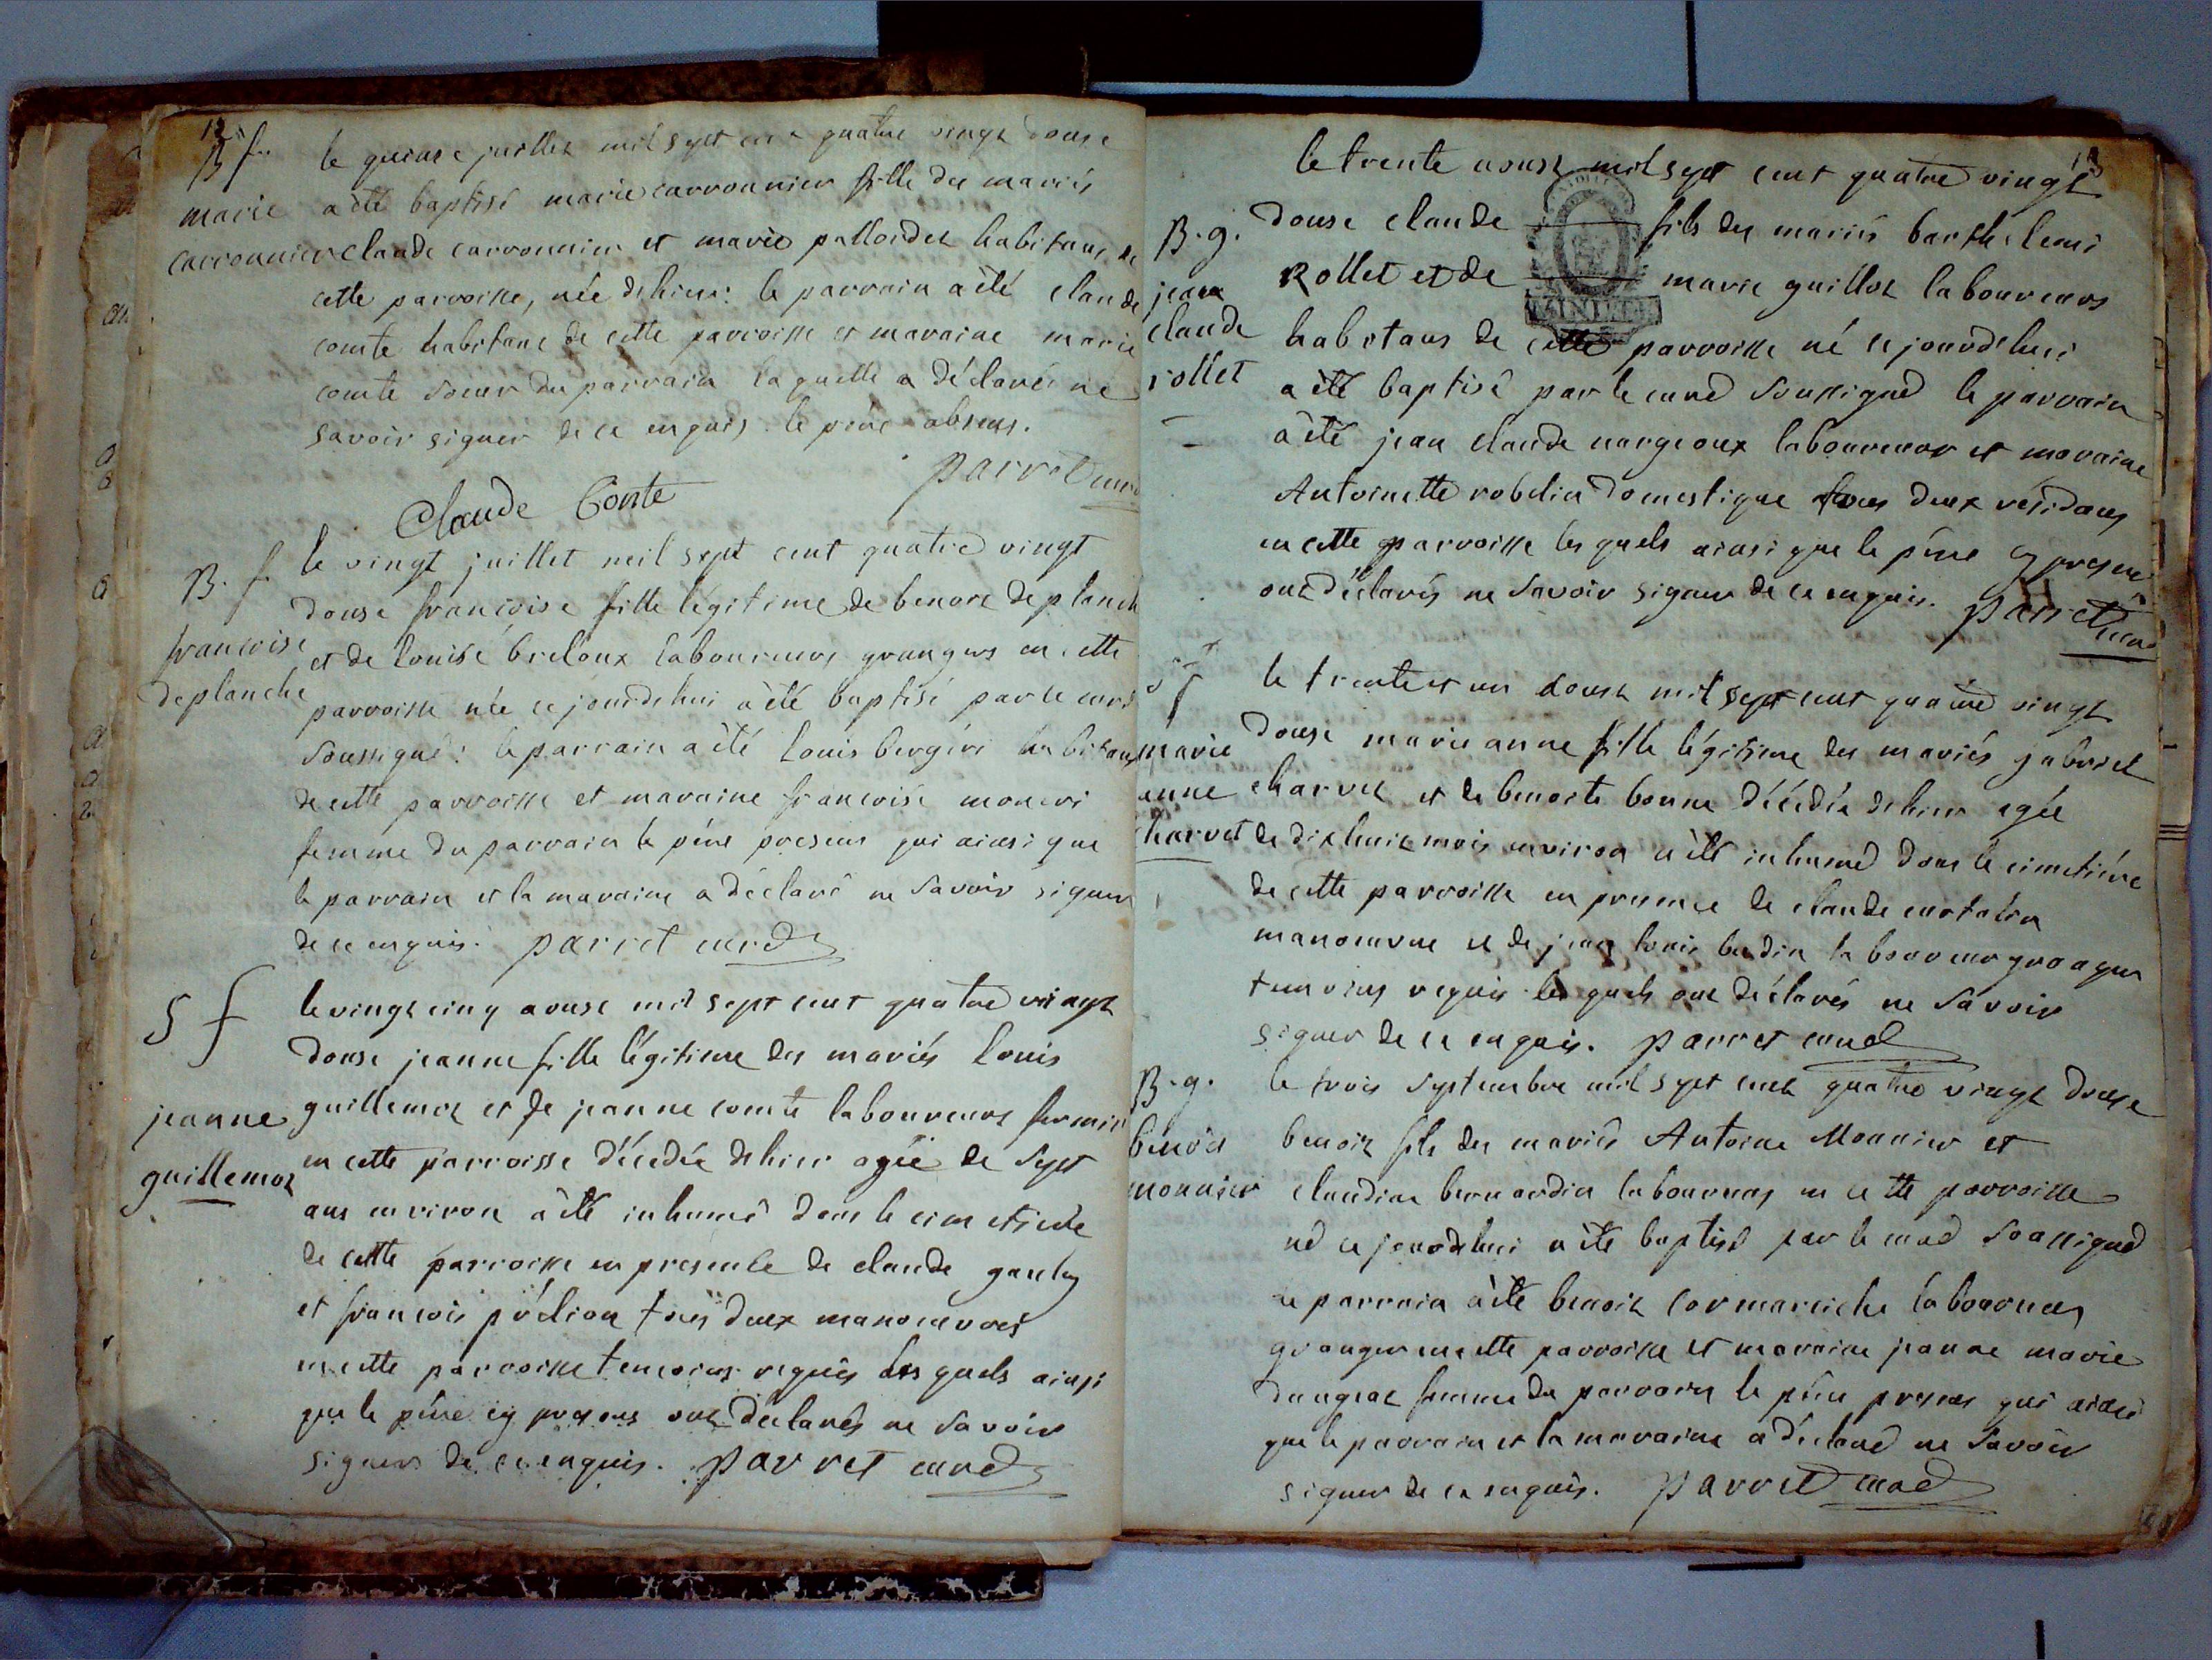 12
B f.
marie
carronnier
le quinse juillet mil sept cent quatre vingt douse
a été baptisé marie carronnier fille des mariés
claude carronnier et marie palloidet habitans de
cette parroisse, née d'hier: le parrain a été claude
comte habitant de cette parroisse et maraine marie
comte soeur du parrain laquelle a déclaré ne
savoir signer de ce enquis. le père absens.
parret curé
Claude Conte
B. f.
francoise
deplanche
le vingt juillet mil sept cent quatre vingt
douse francoise fille légitime de benoit deplanch
et de louise breloux laboureurs grangers en cette
parroisse née ce jourdhui a été baptisé par le curé
soussigné: le parrain a été louis bergéri habitans
de cette parroisse et maraine francoise moneri
femme du parrain le père presens qui ainsi que
le parrain et la maraine a déclaré ne savoir signer
de ce enquis. parret curé
S f
jeanne
guillemot
le vingt cinq aoust mil sept cent quatre vingt
douse jeanne fille légitime des mariés louis
guillemot et de jeanne comte laboureurs fermier
en cette parroisse décédée d'hier agée de sept
ans environ a été inhumé dans le cimetiere
de cette parroisse en presence de claude
et francois tous deux manoeuvres
en cette parroisse temoins requis lesquels ainsi
que le père cy presens ont déclarés ne savoir
signer de ce enquis. parret curé
13
B. g.
jean
claude
rollet
le trente aoust mil sept cent quatre vingt
douse claude fils des mariés barthelemi
Rollet et de marie guillot laboureurs
habitans de cette parroisse né ce jourdhui
a été baptisé par le curé soussigné le parrain
a été jean claude nargeoux laboureur et maraine
Antoinette robelin domestique tous deux résidans
en cette parroisse lesquels ainsi que le père cy presens
ont déclarés ne savoir signer de ce enquis. parret curé
S f
marie
anne
charvet
le trente et un aoust mil sept cent quatre vingt
douse marie anne fille légitime des mariés gabriel
charvet et de benoite bonne décédée d'hier agée
de dix huit mois environ a été inhumé dans le cimetiére
de cette parroisse en presence de claude
manoeuvre et de jean louis laboureur granger
temoins requis lesquels ont déclarés ne savoir
signer de ce enquis. parret curé
B. g.
benoit
monnier
le trois septembre mil sept cent quatre vingt douse
benoit fils des mariés Antoine Monnier et
claudine bernardin laboureurs en cette parroisse
né ce jourdhui a été baptisé par le curé soussigné
le parrain a été benoit cormareiche laboureur
granger en cette parroisse et maraine jeanne marie
femme du parrain le père presens qui ainsi
que le parrain et la maraine a déclaré ne savoir
signer de ce enquis. parret curé